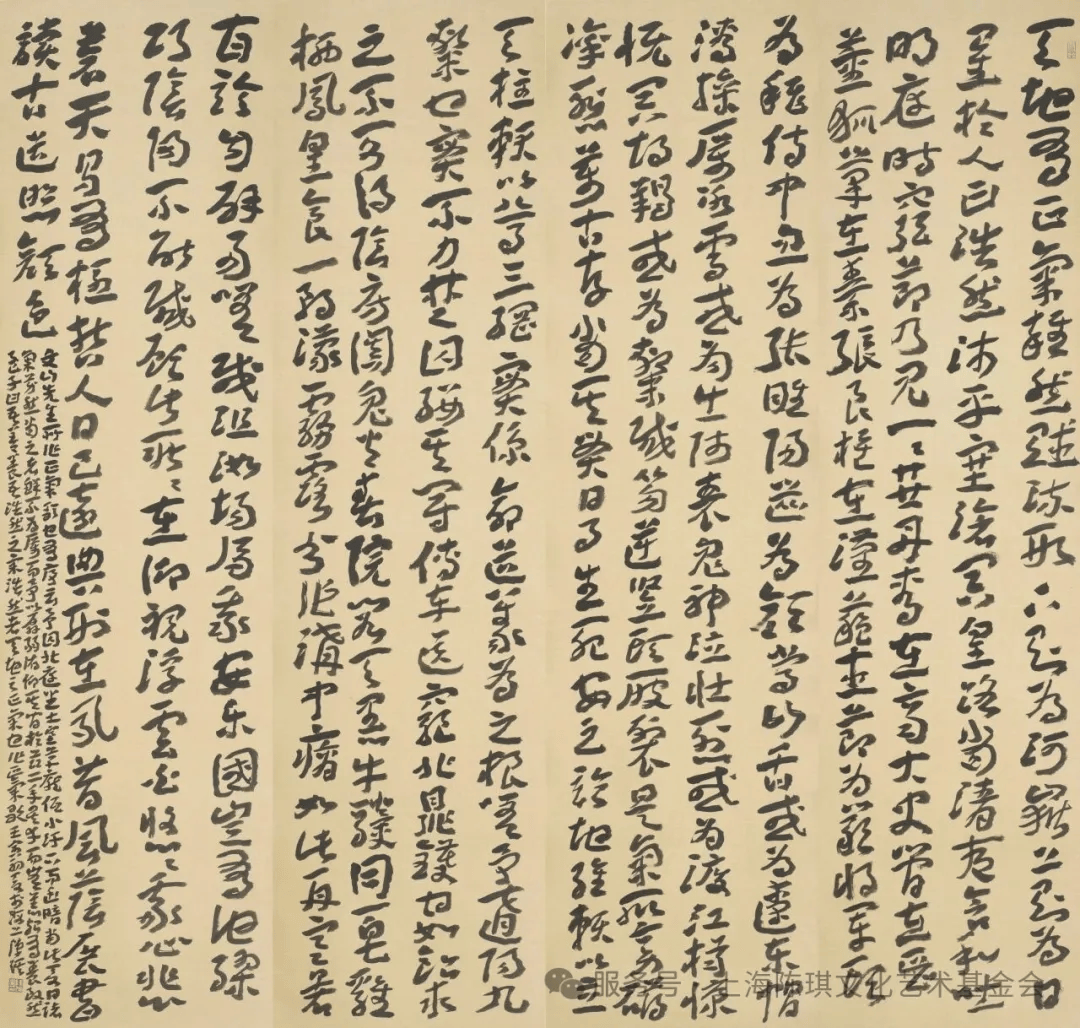 天地有正氣雜然賦流形下則為河嶽上則為日
星於人曰浩然沛乎塞蒼冥皇路當清夷含和吐
明庭時窮節乃見一一垂丹青在齊太史簡在晉
董狐筆在秦張良椎在漢蘇武節為嚴將軍頭
為嵇侍中血為張睢陽齒為顏常山舌或為遼東帽
清操厲冰雪或為出師表鬼神泣壯烈或為渡江楫慷
慨吞胡羯或為擊賊笏逆豎頭破裂是氣所旁礴
凜烈萬古存當其貫日月生死安足論地維賴以立
天柱賴以尊三綱實係命道義為之根嗟予遘陽九
隸也實不力楚囚纓其冠傳車送窮北鼎鑊甘如飴求
之不可得陰房闐鬼火春院閟天黑牛驥同一皂雞
棲鳳皇食一朝濛霧露分作溝中瘠如此再寒暑
百沴自辟易嗟哉沮洳場為我安樂國豈有他繆
巧陰陽不能賊顧此耿耿在仰視浮雲白悠悠我心悲
蒼天曷有極哲人日已遠典刑在夙昔風簷展書
讀古道照顏色
文山先生所作正氣歌也有序云予囚北庭坐土室
浩然者天地之正氣也作正氣歌
服务号 上海陈琪文化艺术基金会